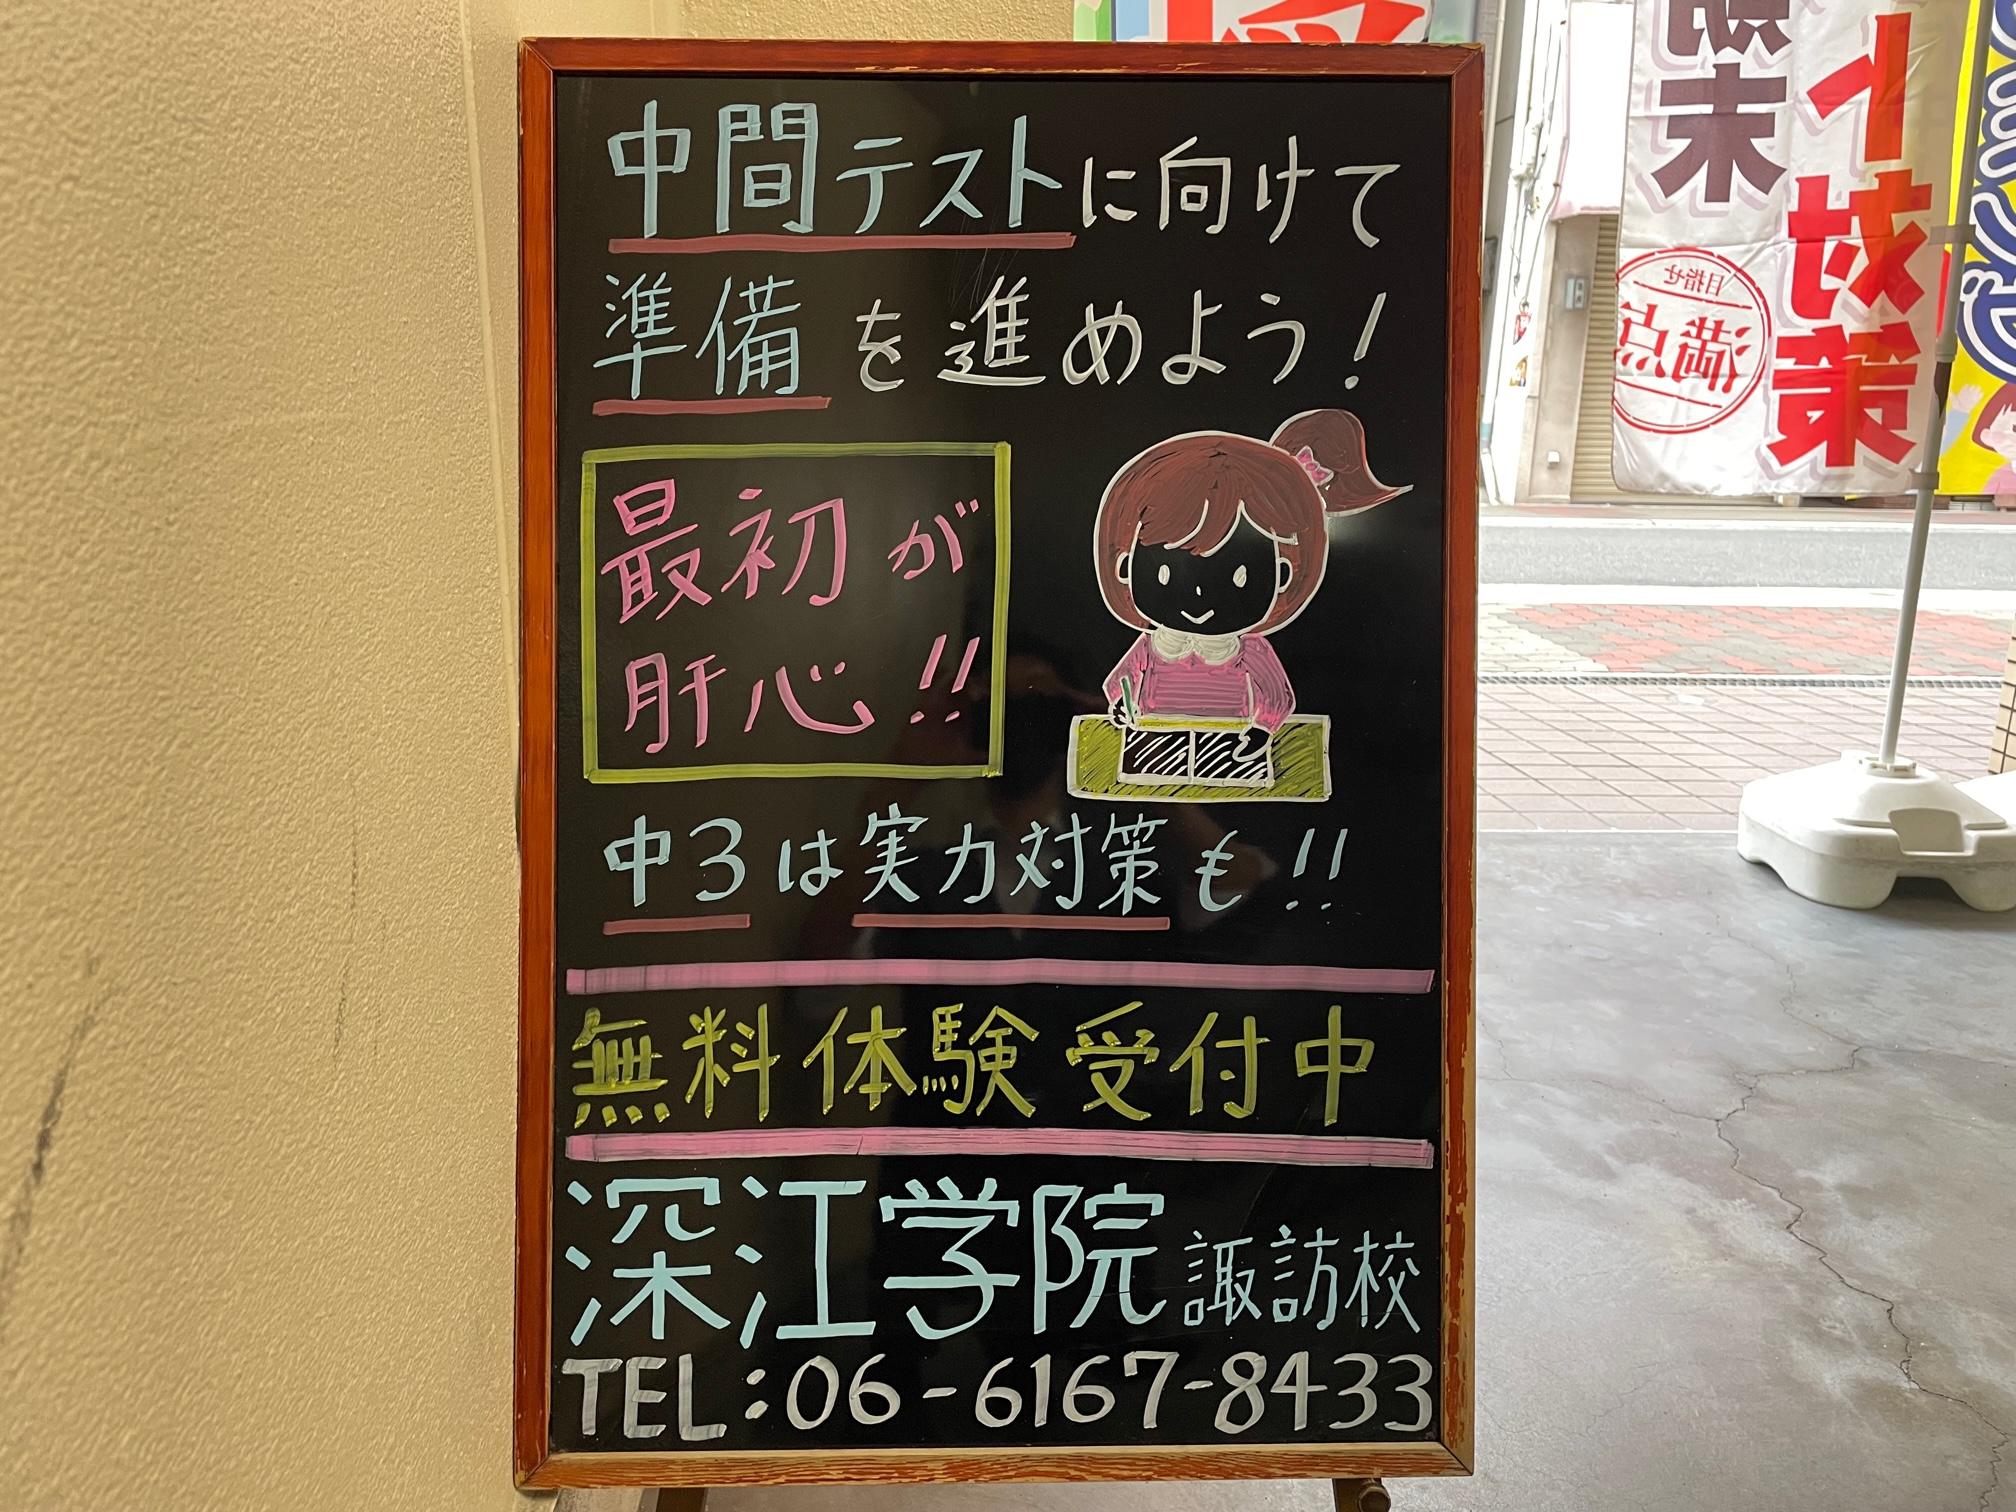 中間テストに向けて
準備を進めよう！
最初が
肝心!!
中3は実力対策も!!
無料体験受付中
深江学院 諏訪校
TEL:06-6167-8433
期末
ト対策
目指せ
満点